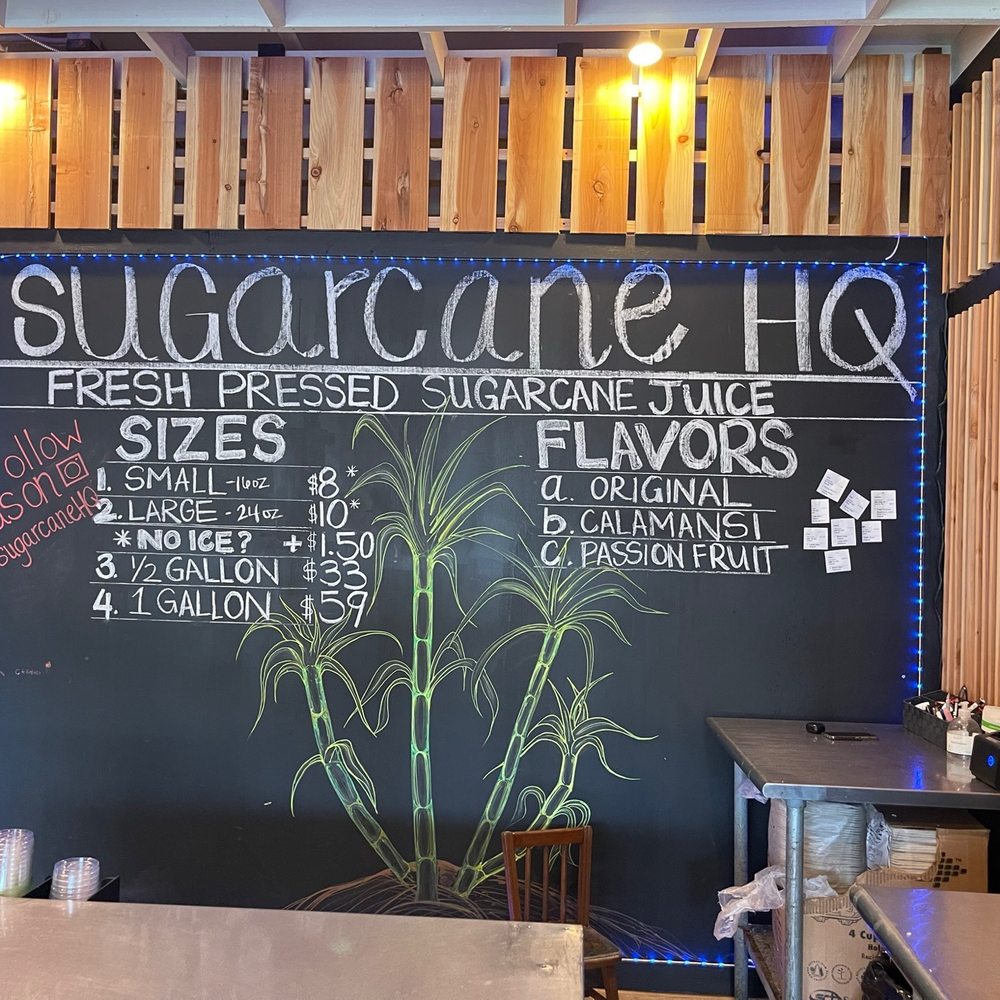 sugarcane HQ
FRESH PRESSED SUGARCANE JUICE
ollow
us on
sugarcaneHQ
SIZES
1. SMALL -16oz $8*
2. LARGE -24oz $10*
*NO ICE? +$1.50
3. 1/2 GALLON $33
4. 1 GALLON $59
FLAVORS
a. ORIGINAL
b. CALAMANSI
c. PASSION FRUIT
4 Cu